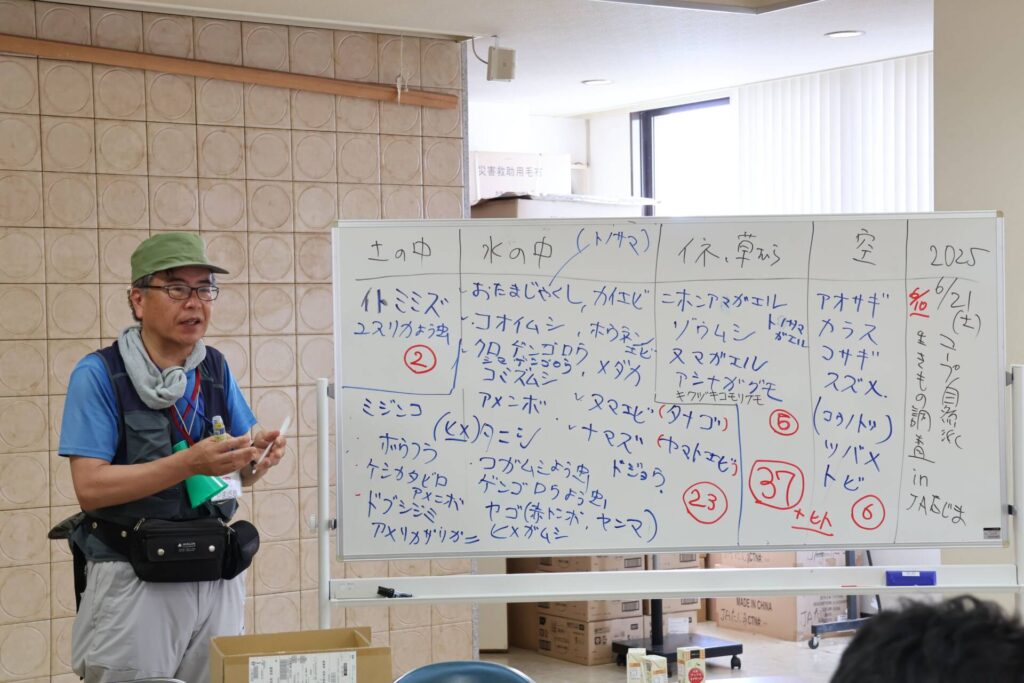 災害救助用毛布
土の中
イトミミズ
ユスリカよう虫
②
水の中
(トノサマ)
おたまじゃくし, カイエビ
コオイムシ, ホウネンエビ
クロゲンゴロウ
シマゲンゴロウ, メダカ
コミズムシ
アメンボ
ヌマエビ (タナゴ)
ミジンコ
(ヒメ)タニシ
ナマズ (ヤマトエビ)
ボウフラ
コガムシよう虫
ドジョウ
ケシカタビロ
アメンボ
ゲンゴロウよう虫
ドブシジミ
ヤゴ(赤トンボ, ヤンマ)
アメリカザリガニ
ヒメガムシ
㉓
イネ、草から
ニホンアマガエル
ゾウムシ
トノサマ
ガエル
ヌマガエル
アシナガグモ
キクヅキコモリグモ
⑤
37
+ヒト
空
アオサギ
カラス
コサギ
スズメ
(コウノトリ)
ツバメ
トビ
⑥
2025
6/21
(土)
6/10
コープ自然派
生きもの調査
in
JAたじま
MADE IN CHINA